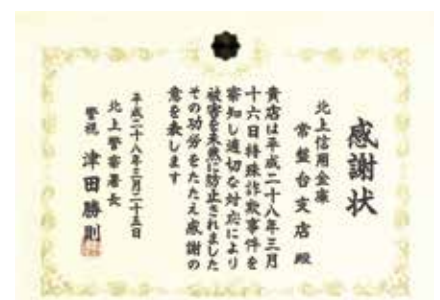 感謝状
北上信用金庫
常盤台支店 殿
貴店は平成二十八年三月
十六日特殊詐欺事件を
察知し適切な対応により
被害を未然に防止されました
その功労をたたえ感謝の
意を表します
平成二十八年三月二十五日
北上警察署長
警視 津田勝則